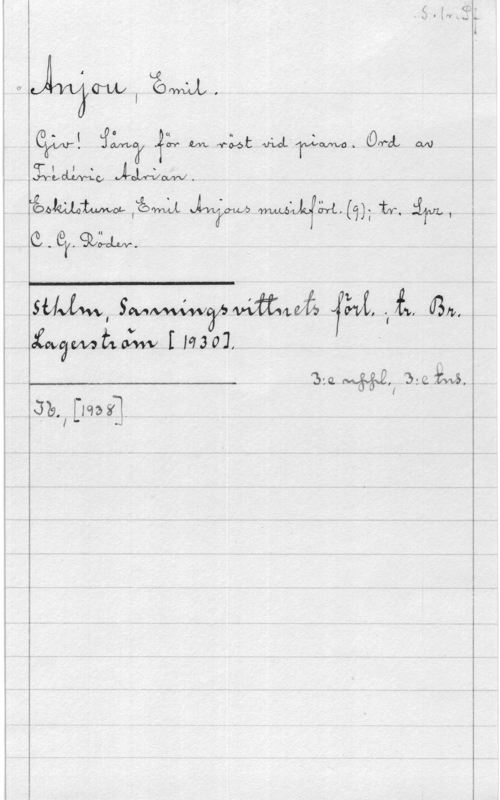 Anjou, Emil.
Giv! Sång för en röst vid piano. Ord av
Frédéric Adrian.
Eskilstuna, Emil Anjous musikförl. (9); tr. Lpz,
C. G. Röder.
Sthlm, Sanningsvittnets förl.; tr. Br.
Lagerström [1930].
3:e uppl., 3:e tns.
Ib., [1938]